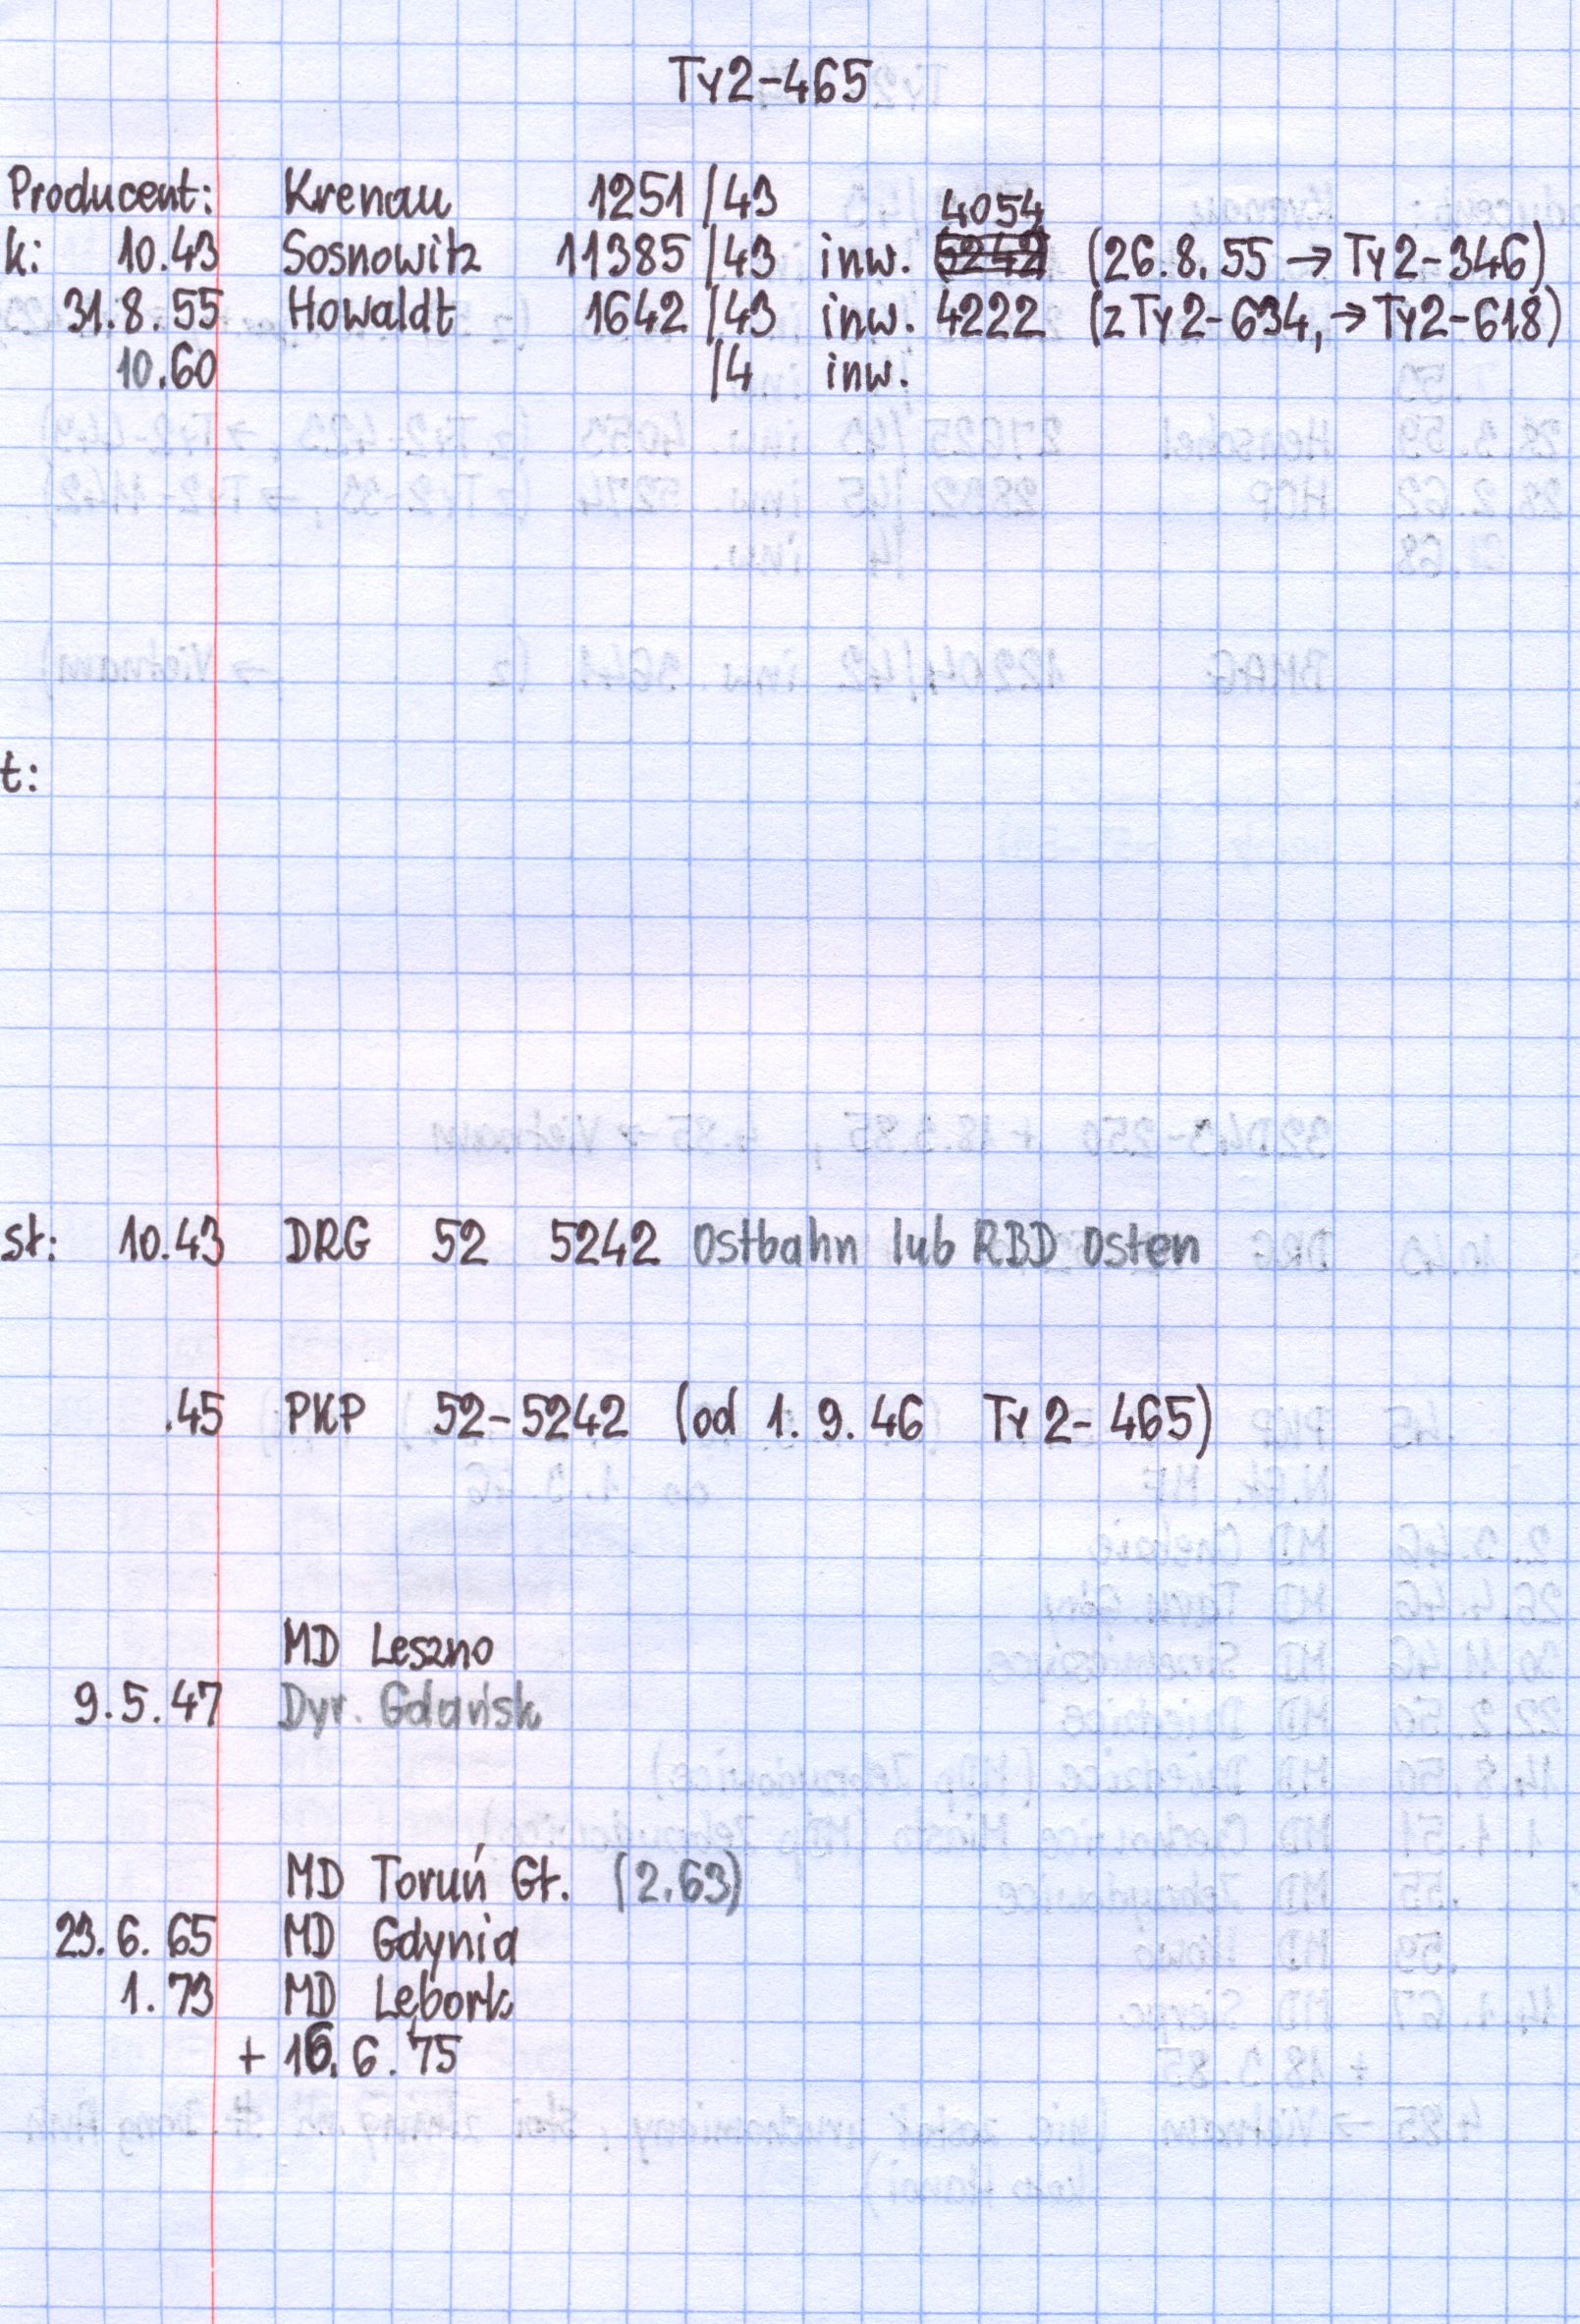 Ty2-465
Producent: Krenau 1251/43
4054
k: 10.43 Sosnowitz 11385/43 inw. 5242 (26.8.55 → Ty2-346)
31.8.55 Howaldt 1642/43 inw. 4222 (z Ty2-634, → Ty2-618)
10.60 /4 inw.
t:
st: 10.43 DRG 52 5242 Ostbahn lub RBD Osten
.45 PKP 52-5242 (od 1.9.46 Ty2-465)
MD Leszno
9.5.47 Dyr. Gdańsk
MD Toruń Gł. (2.63)
23.6.65 MD Gdynia
1.73 MD Lębork
+ 16.6.75